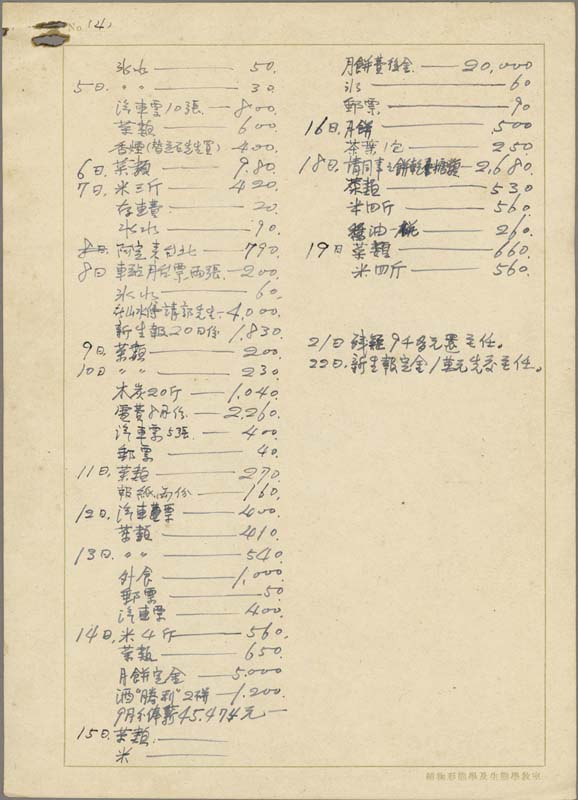 No. (4)
冰水 50.
5日. 〃 〃 30.
汽車票10張 800.
菜類 600.
香煙 400.
6日. 菜類 9.80.
7日. 米三斤 420.
存車費 20.
冰水 90.
8日. 阿定來台北 790.
8日 車站月台票兩張 200.
冰水 60.
請郭先生 4,000.
新生報20日份 1,830.
9日. 菜類 200.
10日 〃 〃 230.
木炭20斤 1,040.
電費8月份. 2,260.
汽車票5張 400.
郵票 40.
11日. 菜類 270.
報紙兩份 160.
12日. 汽車票 400.
菜類 410.
13日. 〃 〃 540.
外食 1,000.
郵票 50
汽車票 400.
14日. 米4斤 560.
菜類 650.
月餅定金 5,000
酒"勝利"2瓶 1,200.
9月份俸薪45.474元
15日. 菜類.
米
月餅費後金. 20,000
冰 60
郵票 90
16日. 月餅 500
茶葉1包 250
18日. 請同事 2,680.
菜類 530
米四斤 560.
醬油一瓶 260.
19日 菜類 660.
米四斤 560.
21日 94多元還主任。
22日. 新生報定金1萬元先交主任。
植物形態學及生態學教室